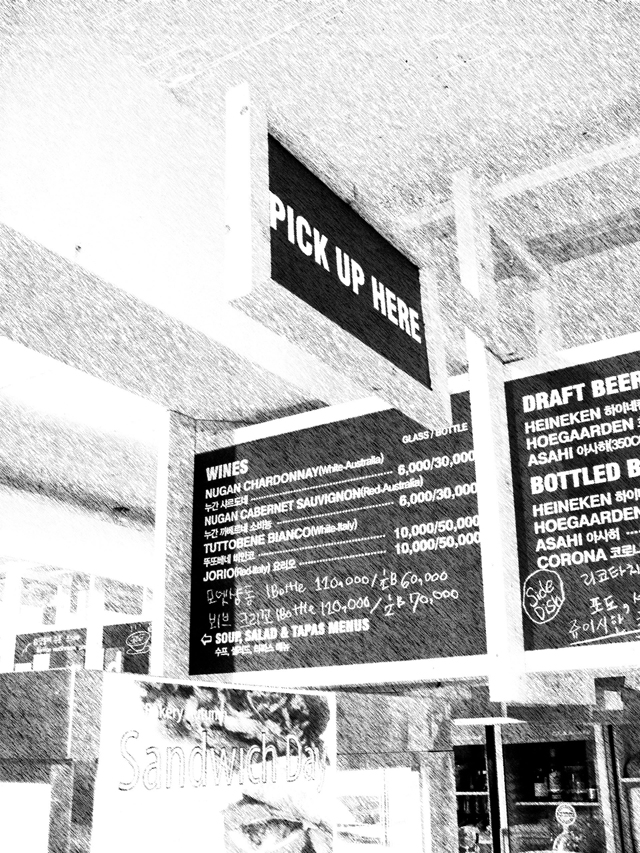 PICK UP HERE
GLASS / BOTTLE
WINES
NUGAN CHARDONNAY(White-Australia)
누간 샤르도네 6,000/30,000
NUGAN CABERNET SAUVIGNON(Red-Australia)
누간 까베르네 소비뇽 6,000/30,000
TUTTOBENE BIANCO(White-Italy)
뚜또베네 비앙코 10,000/50,000
JORIO(Red-Italy) 요리오 10,000/50,000
모엣샹동 1Bottle 110,000/½B 60,000
뵈브 크리꼬 1Bottle 120,000/½B 70,000
SOUP, SALAD & TAPAS MENUS
수프, 샐러드, 타파스 메뉴
DRAFT BEER
HEINEKEN 하이네
HOEGAARDEN
ASAHI 아사히(350C
BOTTLED B
HEINEKEN 하이
HOEGAARDEN
ASAHI 아사히
CORONA 코로나
Side Dish
리코타
포도,
Sandwich Day